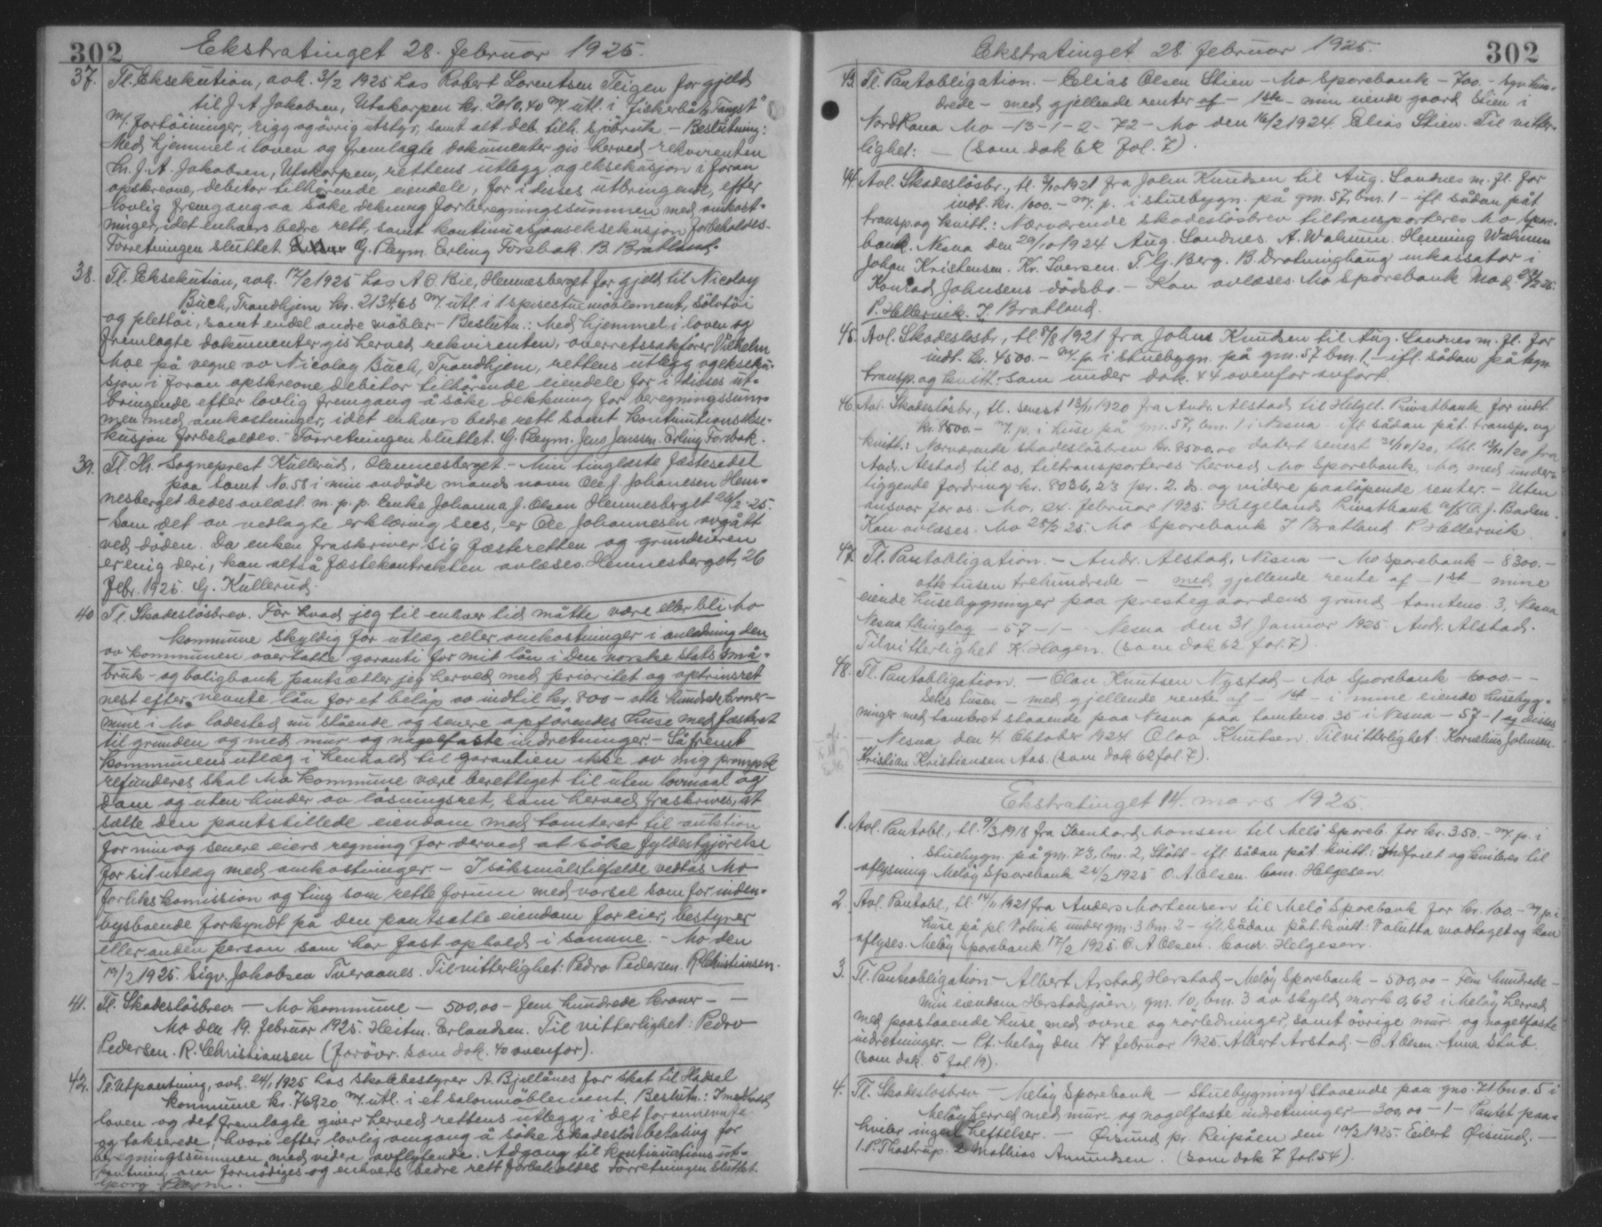 302 Ekstratinget 28. februar 1925.
37. Tl. Eksekution, avh. 3/2 1925 hos Robert Lorentsen Teigen for gjeld
til J. A. Jakobsen, Utskarpen kr. 2010,40 m/ utl. i fiskerbåt "Tangst"
m/ fortöininger, rigg og övrig utstyr, samt alt deb. tilh. sjöbruk. - Beslutning:
Med hjemmel i loven og fremlagte dokumenter gis herved rekvirenten
hr. J. A. Jakobsen, Utskarpen, rettens utlegg og eksekusjon i foran
opskrevne, debitor tilhörende eiendele, for i disses utbringende, efter
lovlig fremgang aa söke dekning for beregningssummen med omkost-
ninger, idet enhvers bedre rett, samt kontinuasjonseksekusjon forbeholdes.
Forretningen sluttet. G. Pleym. Erling Forsbak. B. Bratland.
38. Tl. Eksekution, avh. 17/2 1925 hos A. O. Bie, Hemnesberget for gjeld til Nicolay
Buch, Trondhjem kr. 2134,68 m/ utl. i 1 spisestuemöblement, sölvtöi
og plettöi, samt endel andre möbler - Beslutn.: Med hjemmel i loven og
fremlagte dokumenter gis herved rekvirenten, overretssakförer Vilhelm
Moe på vegne av Nicolay Buch, Trondhjem, rettens utlegg og ekseku-
sjon i foran opskrevne debitor tilhörende eiendele for i disses ut-
bringende efter lovlig fremgang å söke dekning for beregningssum-
men med omkostninger, idet enhvers bedre rett samt kontinutionsekse-
kusjon forbeholdes. - Forretningen sluttet. G. Pleym. Jens Jenssen. Erling Forsbak.
39. Tl. Hr. Sogneprest Kullerud, Hemnesberget. - Min tinglæste fæstesedel
paa tomt No. 58 i min avdöde mands navn Ole J. Johannesen Hem-
nesberget bedes avlæst. m. p. p. Enke Johanna J. Olsen Hemnesberget 26/2 - 25.
- Som det av vedlagte erklæring sees, er Ole Johannesen avgått
ved döden. Da enken fraskriver sig fæsteretten og grundeieren
er enig deri, kan altså fæstekontrakten avlæses. Hemnesberget, 26
febr. 1925. G. Kullerud.
40 Tl. Skadeslösbrev. For hvad jeg til enhver tid måtte være eller bli Mo
kommune skyldig for utlæg eller omkostninger i anledning den
av kommunen overtatte garanti for mit lån i Den norske stats små-
bruk- og boligbank pantsætter jeg herved med prioritet og optrinsret
nest efter nevnte lån for et belöp av indtil kr. 800 - otte hundrede kroner -
mine i Mo ladested nu stående og senere opförendes huse med fæsteret
til grunden og med mur og nagelfaste indretninger. - Såfremt
kommunens utlæg i henhold til garantien ikke av mig prompte
refunderes skal Mo kommune være berettiget til uten lovmaal og
dom og uten hinder av lösningsret, som herved fraskrives, at
sætte den pantstillede eiendom med tomteret til auktion
for min og senere eiers regning for derved at söke fyldestgjörelse
for sit utlæg med omkostninger. - I söksmålstilfælde vedtas Mo
forlikskomission og ting som rette forum med varsel som for inden-
bygsboende forkyndt på den pantsatte eiendom for eier, bestyrer
eller anden person som har fast ophold i samme. - Mo den
19/2 1925. Sigv. Jakobsen Tveraanes. Til vitterlighet: Pedro Pedersen. R. Christiansen.
41. Tl. Skadeslösbrev - Mo kommune - 500,00 - fem hundrede kroner - -
Mo den 19. februar 1925. Heitm. Erlandsen. Til vitterlighet: Pedro
Pedersen. R. Christiansen (forövr. som dok. 40 ovenfor).
42. Tl. Utpantning, avh. 24/1 1925 hos skolebestyrer A. Bjellånes for skat til Hadsel
kommune kr. 769,20 m/ utl. i et salonmöblement. Beslutn.: I medhold
loven og det fremlagte giver herved rettens utlegg i det forannevnte
og takserede, hvori efter lovlig omgang å söke skadeslös betaling for
beregningssummen med videre avflytende. Adgang til kontinuations ut-
pantning om fornödiges og enhvers bedre rett forbeholdes. Forretningen sluttet.
Georg Pleym.
Ekstratinget 28. februar 1925. 302
43. Tl. Pantobligation. - Elias Olsen Stien - Mo Sparebank - 700. - syv hun-
drede - med gjellende renter af - 1ste - min eiende gaard Stien i
Nord Rana Mo - 13 - 1 - 2 - 72 - Mo den 16/2 1924 Elias Stien. Til vitter-
lighet: - (som dok 62 fol. 7).
44. Avl. Skadeslösbr., tl. 1921 fra John Knudsen til Aug. Sandnes m. fl. for
indt. kr. 1000. - m/ p. i stuebygn. på gm. 57, bm. 1 - ifl. sådan påt.
transp. og kvitt.: Nærværende skadeslösbrev tiltransporteres Mo Spare-
bank. Nesna den 29/10 1924 Aug. Sandnes. A. Walnum. Henning Walnum
Johan Kristensen. Kr. Iversen. T. G. Berg. B. Drotninghaug inkassator i
Konrad Johnsens dödsbo. - Kan avlæses. Mo Sparebank Mo d. 25.
P. Hellervik. J. Bratland.
45. Avl. Skadeslösbr., tl. 8/8 1921 fra Johns Knudsen til Aug. Sandnes m. fl. for
indt. kr. 4500. - m/ p. i stuebygn. på gm. 57 bm. 1 - ifl. sådan påtegn.
transp. og kvitt. som under dok. 44 ovenfor anfört.
46. Avl. Skadeslösbr., tl. senest 12/11 1920 fra Andr. Alstad til Helgel. Privatbank for indt.
kr. 8500. - m/ p. i huse på gm. 57, bm. 1 i Nesna - ifl. sådan påt. transp. og
kvitt.: Nærværende skadeslösbrev kr. 8500,00 datert senest 21/10/20, thl. 12/11/20 fra
Andr. Alstad til os, tiltransporteres herved Mo Sparebank, Mo, med under-
liggende fordring kr. 8036,23 pr. 2. ds. og videre paalöpende renter. - Uten
ansvar for os. Mo, 24. februar 1925. Helgelands Privatbank A/S O. J. Baden.
Kan avlæses. Mo 25/2 25. Mo Sparebank J Bratland P. Hellervik.
47. Tl. Pantobligation. - Andr. Alstad, Nesna - Mo Sparebank - 8300. -
otte tusen trehundrede - med gjellende rente af - 1ste - mine
eiende husebygninger paa prestegaardens grund tomteno. 3, Nesna
Nesna thinglag - 57 - 1 - Nesna den 31 Januar 1925. Andr. Alstad.
Til vitterlighet K. Hagen. (som dok 62 fol. 7).
48. Tl. Pantobligation. - Olav Knutsen Nystad - Mo Sparebank 6000. - -
Seks tusen - med gjellende rente af - 1ste - i mine eiende husbyg-
ninger med tomteret staaende paa Nesna paa tomteno. 35 i Nesna - 57 - 1 og disses
- Nesna, den 4. Oktober 1924 Olav Knutsen. Til vitterlighet: Kornelius Johnsen.
Kristian Kristiansen Aas. (som dok 62 fol. 7).
Ekstratinget 14. mars 1925.
1. Avl. Pantobl., tl. 9/3 1918 fra Ivenhard Monsen til Melö Spareb. for kr. 350. - m/ p. i
stuebygn. på gm. 73, bm. 2, Stött - ifl. sådan påt. kvitt: Indfriet og kvitteres til
aflysning Melöy Sparebank 24/2 1925 O. A. Olsen. Conr. Helgesen.
2. Avl. Pantobl., tl. 14/1 1921 fra Anders Mortensen til Melö Sparebank for kr. 100. - m/ p. i
huse på pl. Valvik under gm. 3 bm. 2 - ifl. sådan påt. kvitt: Valutta modtaget og kan
aflyses. Melöy Sparebank 17/2 1925 O. A. Olsen. Conr. Helgesen.
3. Tl. Pantobligation - Albert Arstad, Horstad - Melöy Sparebank - 500,00 - Fem hundrede -
min eiendom Horstadsjöen, gm. 10, bm. 3 av skyld mark 0,62 i Melöy herred
med paastaaende huse, med ovne og rörledninger, samt övrige mur- og nagelfaste
indretninger. - Pt. Melöy den 17 februar 1925. Albert Arstad. - O. A. Olsen. Anna
(som dok. 5 fol 19).
4. Tl. Skadeslosbrev - Melöy Sparebank - Stuebygning staaende paa gno. 71 bno. 5 i
Melöy herred med mur og nagelfaste indretninger - 300,00 - 1 - Pantet paa-
hviler ingen heftelser. - Öisund pr. Reipåen den 10/2 1925. Eilert Öisund. -
I. P. Thostrup. Mathias Amundsen. (som dok 7 fol. 54).